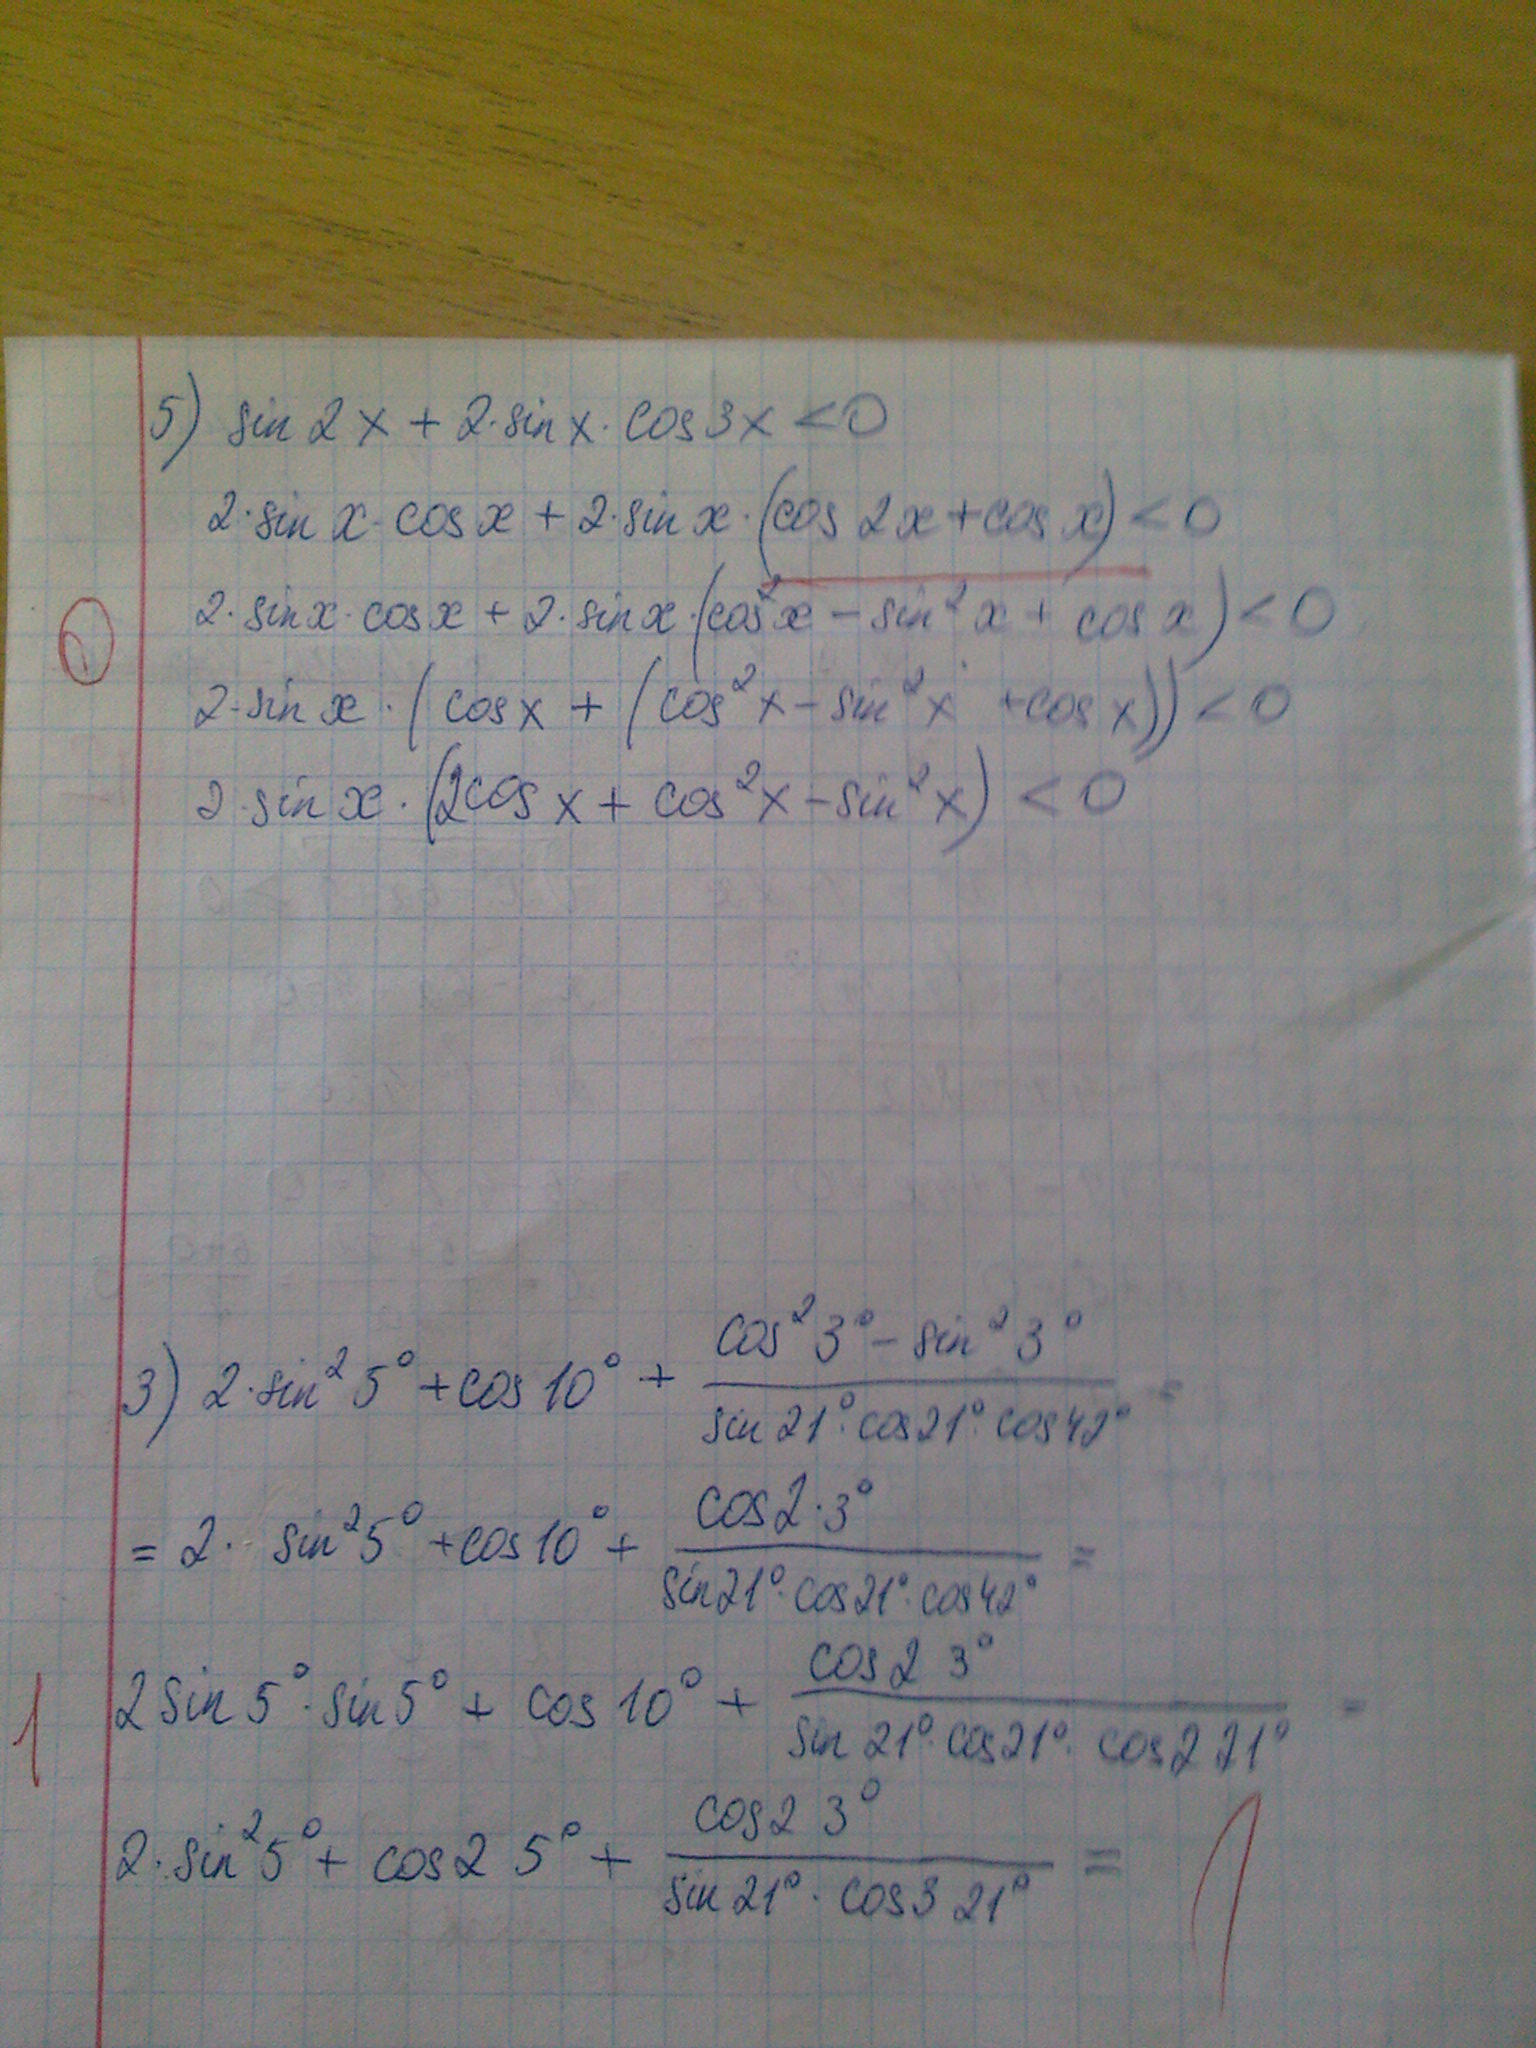 5) sin 2x + 2·sin x · cos 3x < 0
2·sin x · cos x + 2·sin x · (cos 2x + cos x) < 0
2·sin x · cos x + 2·sin x · (cos²x − sin²x + cos x) < 0
2·sin x · (cos x + (cos²x − sin²x + cos x)) < 0
2·sin x · (2cos x + cos²x − sin²x) < 0
3) 2·sin²5° + cos 10° + (cos²3° − sin²3°)/(sin 21° · cos 21° · cos 42°) =
= 2· sin²5° + cos 10° + (cos 2·3°)/(sin 21° · cos 21° · cos 42°) =
1
2 sin 5° · sin 5° + cos 10° + (cos 2 3°)/(sin 21° · cos 21° · cos 2 21°) =
2·sin²5° + cos 2 5° + (cos 2 3°)/(sin 21° · cos 3 21°) =